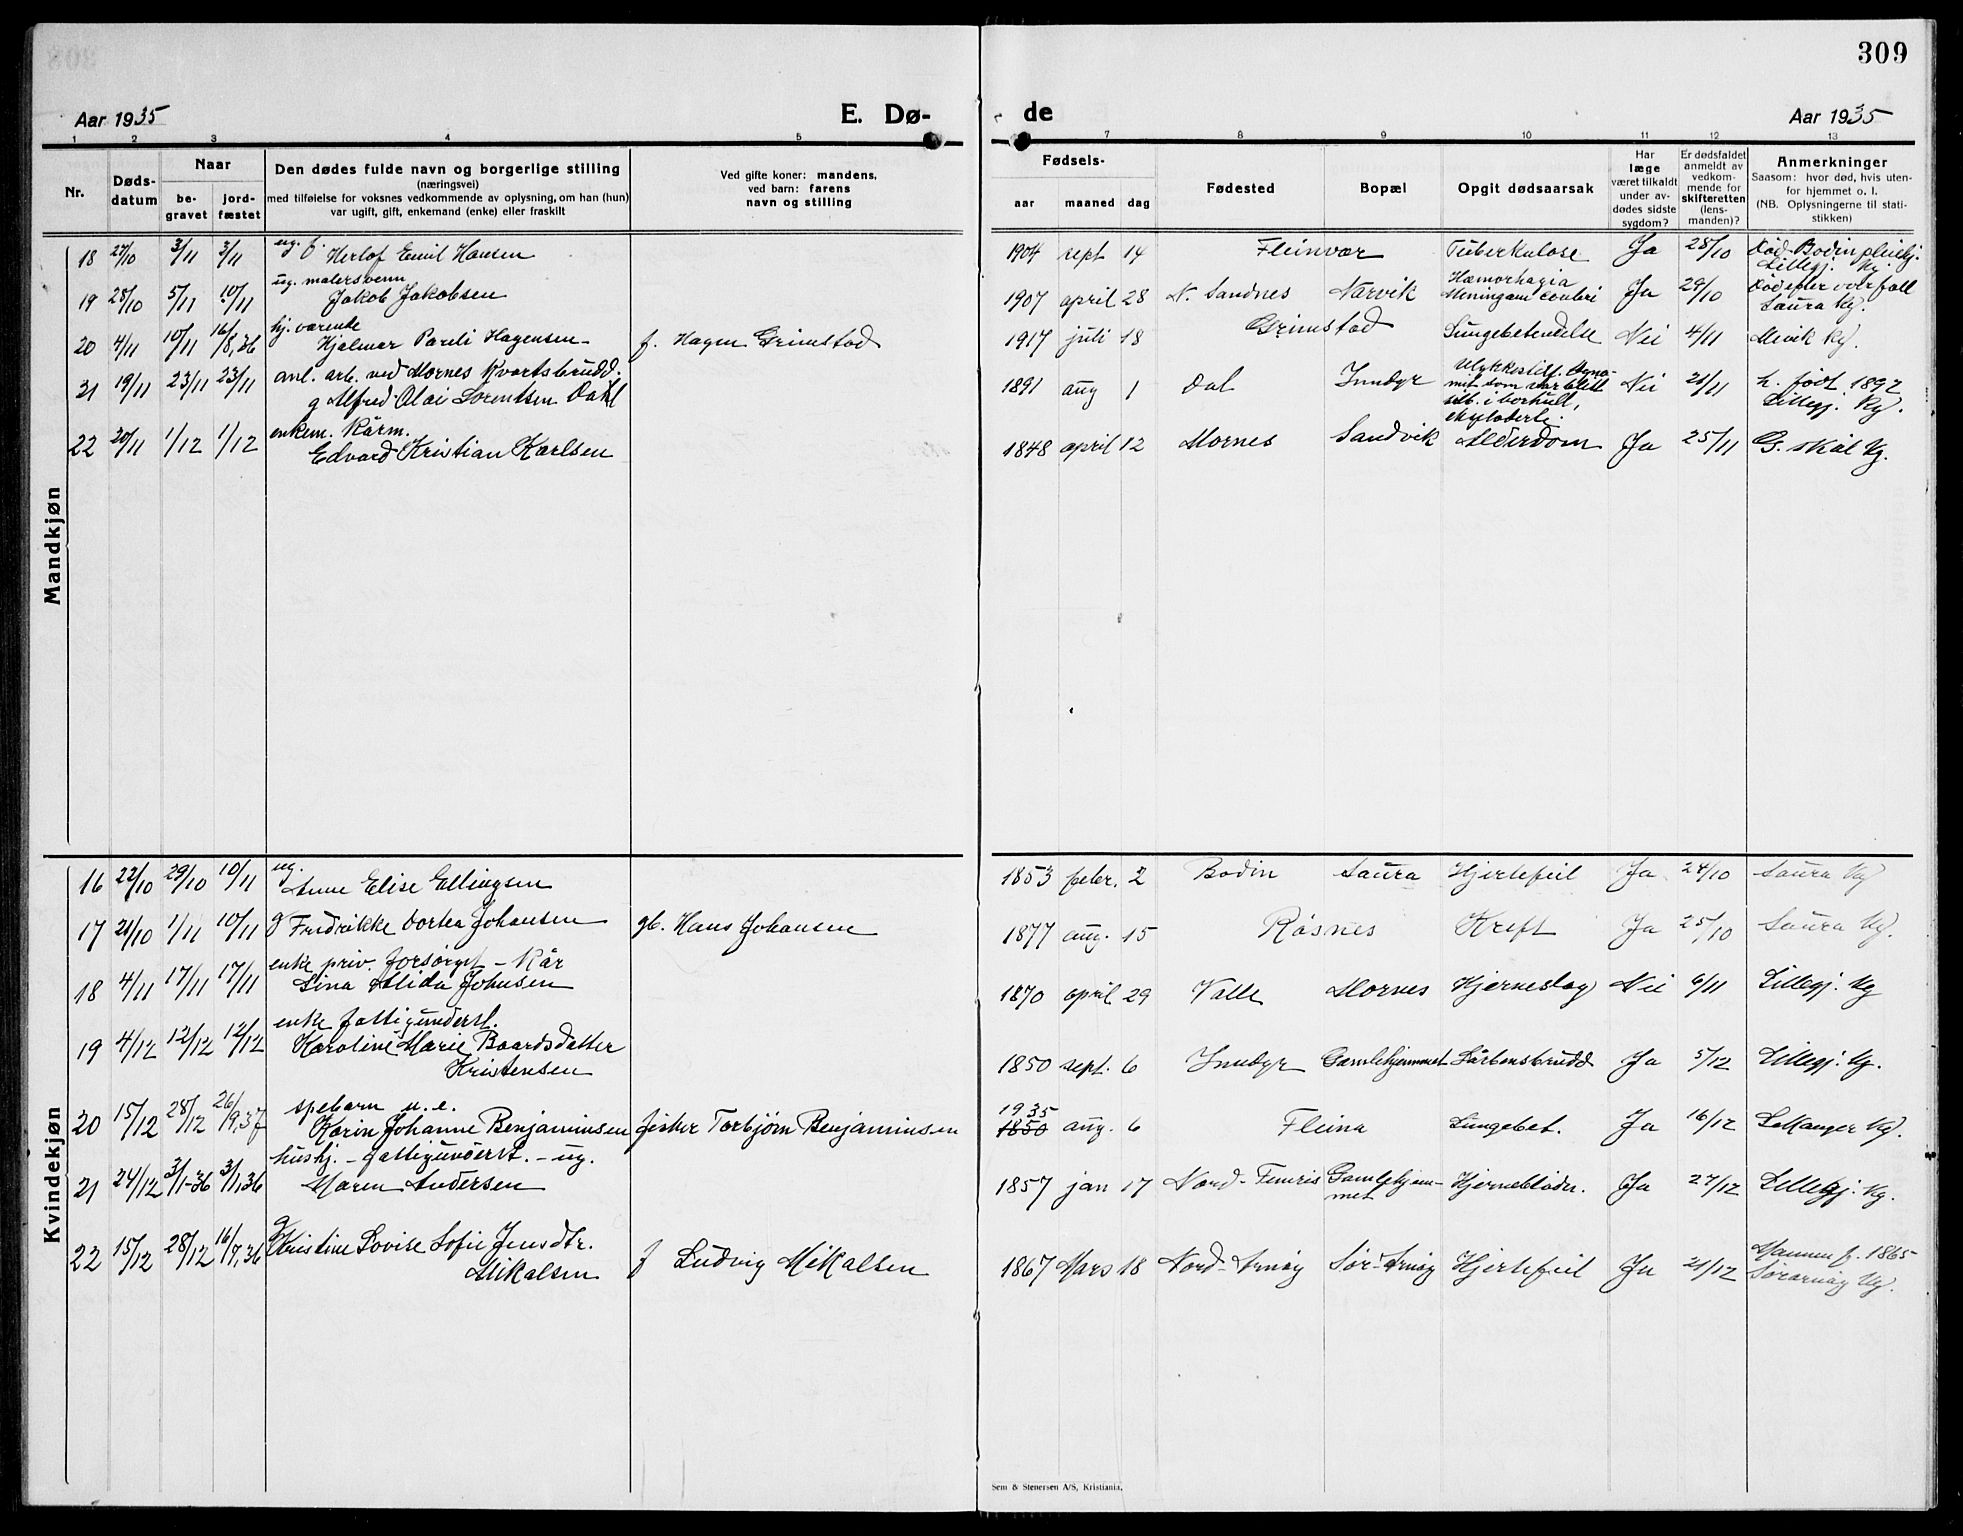 309
Aar 1935 E. Dø- de Aar 1935
1 2 3 4 5 7 8 9 10 11 12 13
Nr. Døds-datum Naar be-gravet jord-fæstet
Den dødes fulde navn og borgerlige stilling
(næringsvei)
med tilføielse for voksnes vedkommende av oplysning, om han (hun)
var ugift, gift, enkemand (enke) eller fraskilt
Ved gifte koner: mandens,
ved barn: farens
navn og stilling
Fødsels-
aar maaned dag
Fødested Bopæl Opgit dødsaarsak
Har læge været tilkaldt under av-dødes sidste sygdom?
Er dødsfaldet anmeldt av vedkom-mende for skifteretten (lens-manden)?
Anmerkninger
Saasom: hvor død, hvis uten-
for hjemmet o. l.
(NB. Oplysningerne til stati-
stikken)
Mandkjøn
18 27/10 3/11 3/11 ug. f. Herlof Emil Hansen 1904 sept 14 Fleinvær Tuberkulose Ja 28/10 Død Bodin pleiehj. Lillegj. Kg.
19 28/10 5/11 10/11 ug. malersvenn Jakob Jakobsen 1907 april 28 N. Sandnes Narvik Hæmorhagia Ja 29/10 Død efter overfall Saura Kg.
20 4/11 10/11 16/8,36 hj. værende Hjalmar Pareli Hagensen f. Hagen Grimstad 1917 juli 18 Grimstad Lungebetendelse Nei 4/11 Mevik Kg.
21 19/11 23/11 23/11 anl. arb. ved Mornes Kvartsbrudd. g Alfred Olai Lorentsen Dahl 1891 aug 1 Dal Inndyr Ulykkestilf. Dyna-mit som var blitt sitt. i borhull, eksploderte. Nei 21/11 h. født 1892 Lillegj. Kg.
22 20/11 1/12 1/12 enkem. Kårm. Edvard Kristian Karlsen 1848 april 12 Mornes Sandvik Alderdom Ja 25/11 G. skål Kg.
Kvindekjøn
16 22/10 29/10 10/11 ug. Anne Elise Ellingsen 1853 febr. 2 Bodin Saura Hjertefeil Ja 24/10 Saura Kg
17 21/10 1/11 10/11 g Fredrikke Dortea Johansen gb. Hans Johansen 1877 aug. 15 Røsnes Kreft Ja 25/10 Saura Kg.
18 4/11 17/11 17/11 enke priv. forsørget - Kår Lina Alida Johnsen 1870 april 29 Valle Mornes Hjerneslag Nei 6/11 Lillegj. Kg
19 4/12 12/12 12/12 enke fattigunderst. Karoline Marie Baardsdatter Kristensen 1850 sept. 6 Inndyr Gamlehjemmet Lårbensbrudd Ja 5/12 Lillegj. Kg.
20 15/12 28/12 26/9,37 spebarn u.e. Karin Johanne Benjaminsen fisker Torbjørn Benjaminsen 1935 1850 aug. 6 Fleina Lungebet. Ja 16/12 Kg.
21 24/12 3/1-36 3/1,36 hushj. - fattigunderst. - ug. Maren Andersen 1857 jan 17 Nord-Femris Gamlehjem-met Hjerneblødn. Ja 27/12 Lillegj. Kg.
22 15/12 28/12 16/7,36 g Kristine Lovise Sofie Jensdtr. Mikalsen f Ludvig Mikalsen 1867 Mars 18 Nord-Arnøy Sør-Arnøy Hjertefeil Ja 21/12 Mannen f. 1865 Sørarnøy Kg.
Sem & Stenersen A/S, Kristiania.